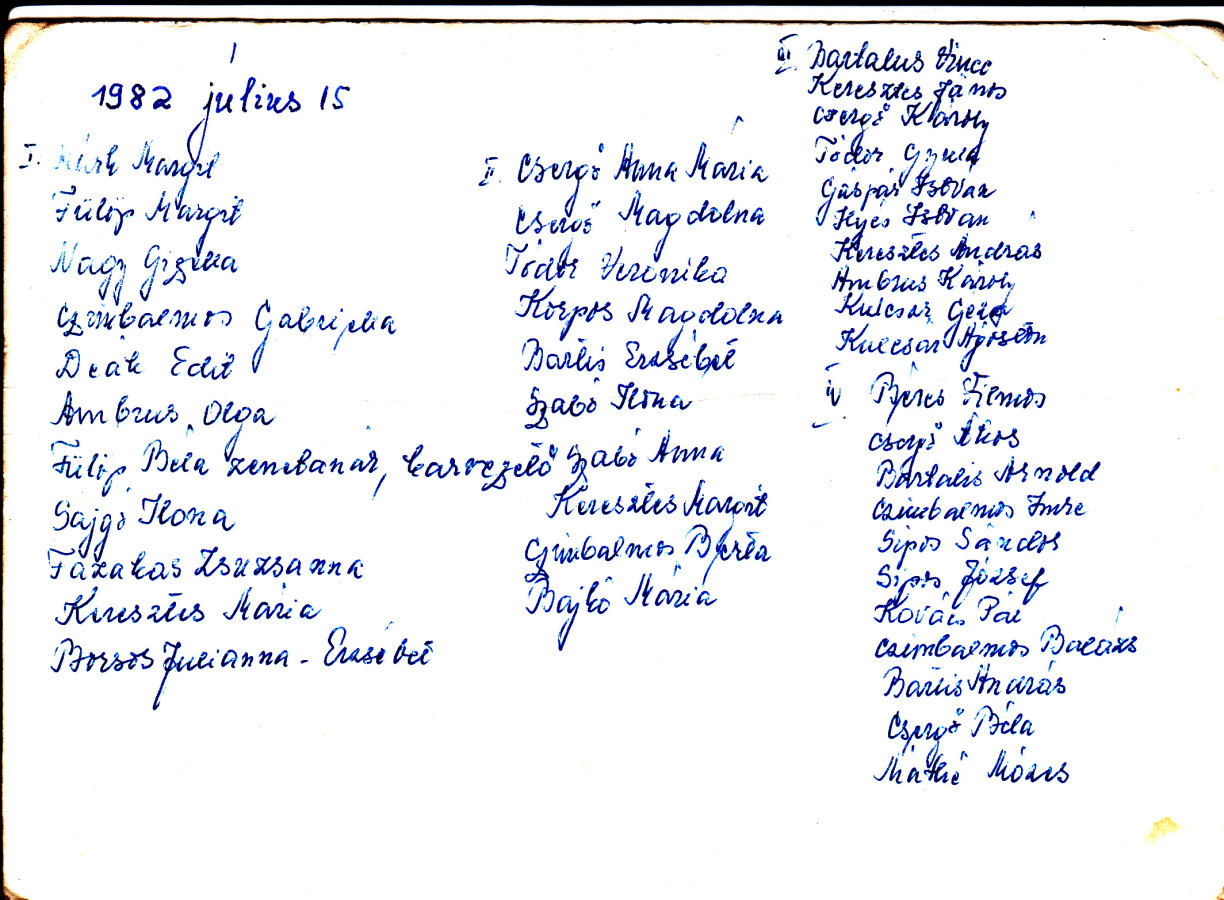 1982 július 15
I. Márk Margit
Fülöp Margit
Nagy Gizella
Czimbalmos Gabriella
Deák Edit
Ambrus Olga
Fülöp Béla zenetanár, karvezető
Sajgó Ilona
Fazakas Zsuzsanna
Keresztes Mária
Borsos Julianna - Erzsébet
II. Csergő Anna Mária
Csergő Magdolna
Tódor Veronika
Korpos Magdolna
Bartis Erzsébet
Szabó Ilona
Szabó Anna
Keresztes Margit
Czimbalmos Berta
Bajkó Mária
III. Bartalus Vince
Keresztes János
Csergő Károly
Tódor Gyula
Gáspár István
Ilyés István
Keresztes András
Ambrus Károly
Kulcsár Géza
Kulcsár Ágoston
IV Béres Vilmos
Csergő Ákos
Bartalis Arnold
Czimbalmos Imre
Sipos Sándor
Sipos József
Kovács Pál
Czimbalmos Balázs
Bartis András
Csergő Béla
Máthé Mózes